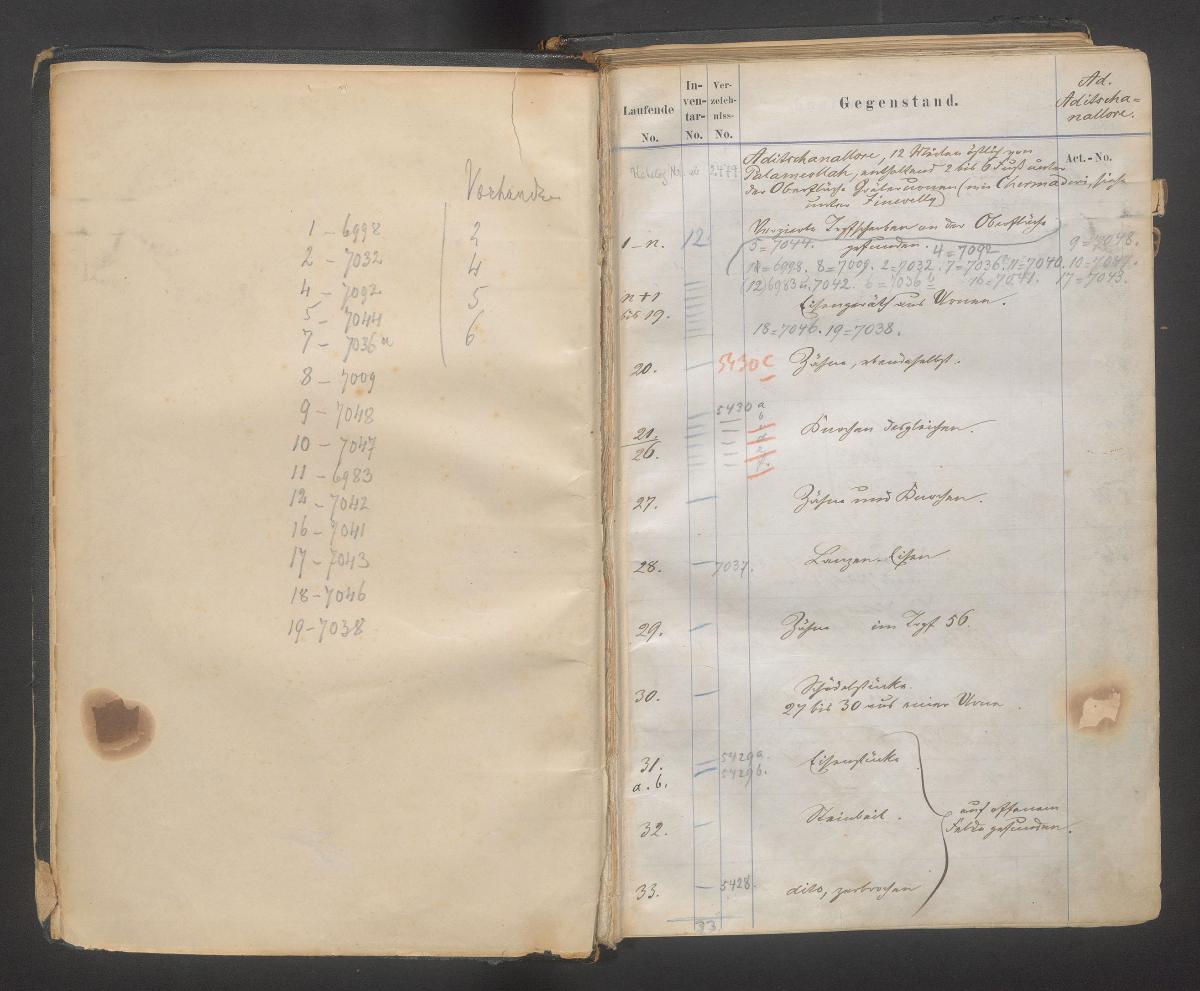 Vorhanden
1 - 6998
2 - 7032
4 - 7092
5 - 7044
7 - 7036a
8 - 7009
9 - 7048
10 - 7047
11 - 6983
12 - 7042
16 - 7041
17 - 7043
18 - 7046
19 - 7038
2
4
5
6
Laufende No.
In-ven-tar- No.
Ver-zeich-niss- No.
Gegenstand.
Ad. Aditscha=
nallore.
Act.-No.
Katalog Nr.
Aditschanallore, 12 östlich von
Palamcottah, enthaltend 2 bis 6 Fuß unter
der Oberfläche Gräberurnen (wie Chermadevi, siehe
unter Tinevelly)
1-n. 12 Verzierte Topfscherben an der Oberfläche
gefunden.
5=7044. 4=7092 9=7048.
8=7009. 2=7032. 7=7036a 11=7040. 10=7047.
(12) 6983 u. 7042. 6=7036b 16=7041. 17=7043.
n+1
bis 19.
Eisengeräth aus Urnen.
18=7046. 19=7038.
20. 5430c Zähne, ebendaselbst.
21.
26.
5430 a
b
Knochen desgleichen.
27. Zähne und Knochen.
28. 7037. Lanzen-Eisen
29. Zähne im Topf 56.
30. Schädelstücke.
27 bis 30 aus einer Urne.
31.
a. b.
5429a.
5429b.
Eisenstücke
32. Steinbeil.
auf offenem
Felde gefunden.
33. 5428. dito, zerbrochen
33